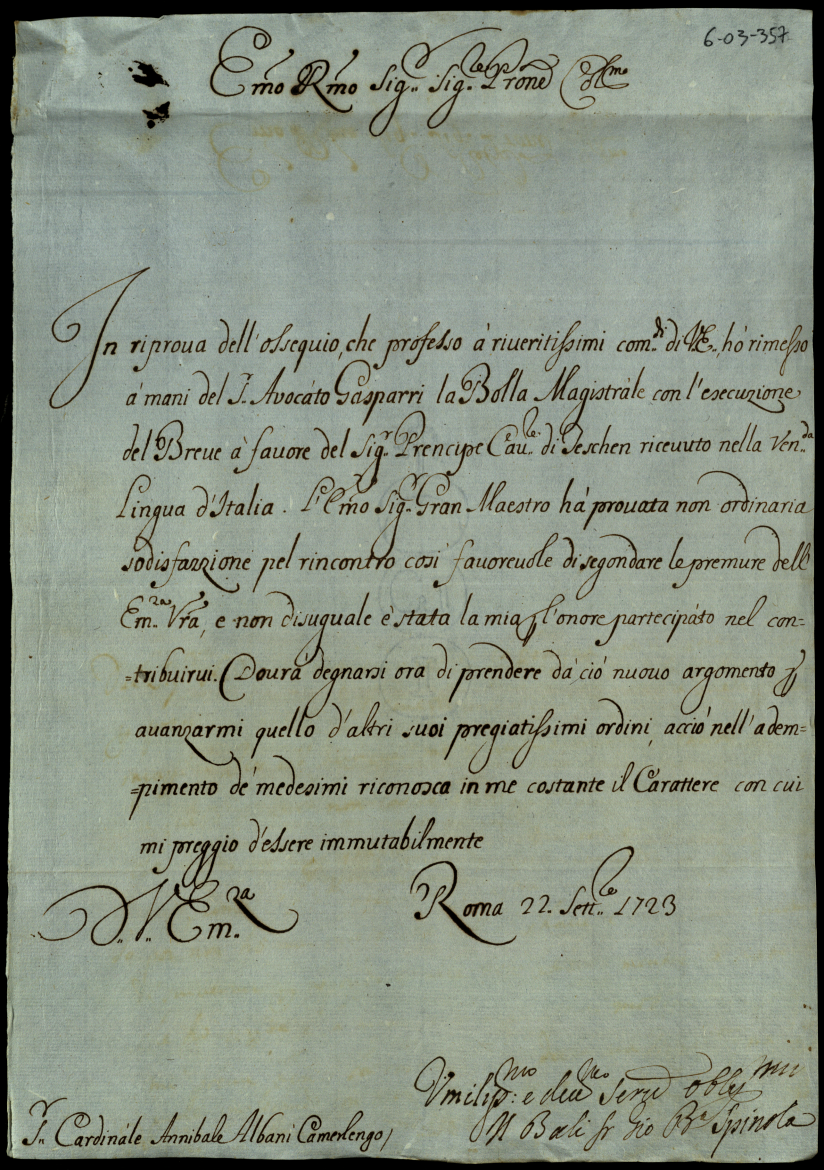 6-03-357
Emo Rmo Sig.r Sig.re Prone Colmo
In riprova dell'ossequio, che professo à riveritissimi com.di di V.E., hó rimesso
á mani del S.r Avocáto Gasparri la Bolla Magistrále con l'esecuzione
del Breve à favore del Sig.r Prencipe Cav.re di Teschen ricevuto nella Ven.da
Lingua d'Italia. L'Emo Sig.r Gran Maestro há provata non ordinaria
sodisfazzione pel rincontro così favorevole di segondare le premure dell'
Em.za Vrã, e non disuguale è stata la mia p l'onore partecipáto nel con=
=tribuirvi. Dovrá degnarsi ora di prendere da ció nuovo argomento p
avanzarmi quello d'altri suoi pregiatissimi ordini, acció nell'adem=
=pimento de' medesimi riconosca in me costante il Carattere con cui
mi preggio d'essere immutabilmente
D. V. Em.za
Roma 22. Sett.re 1723
Umiliss.mo e dev.mo serv.e obbl.mo
Il Bali fr Gio Ba Spinola
S.r Cardinále Annibale Albani Camerlengo